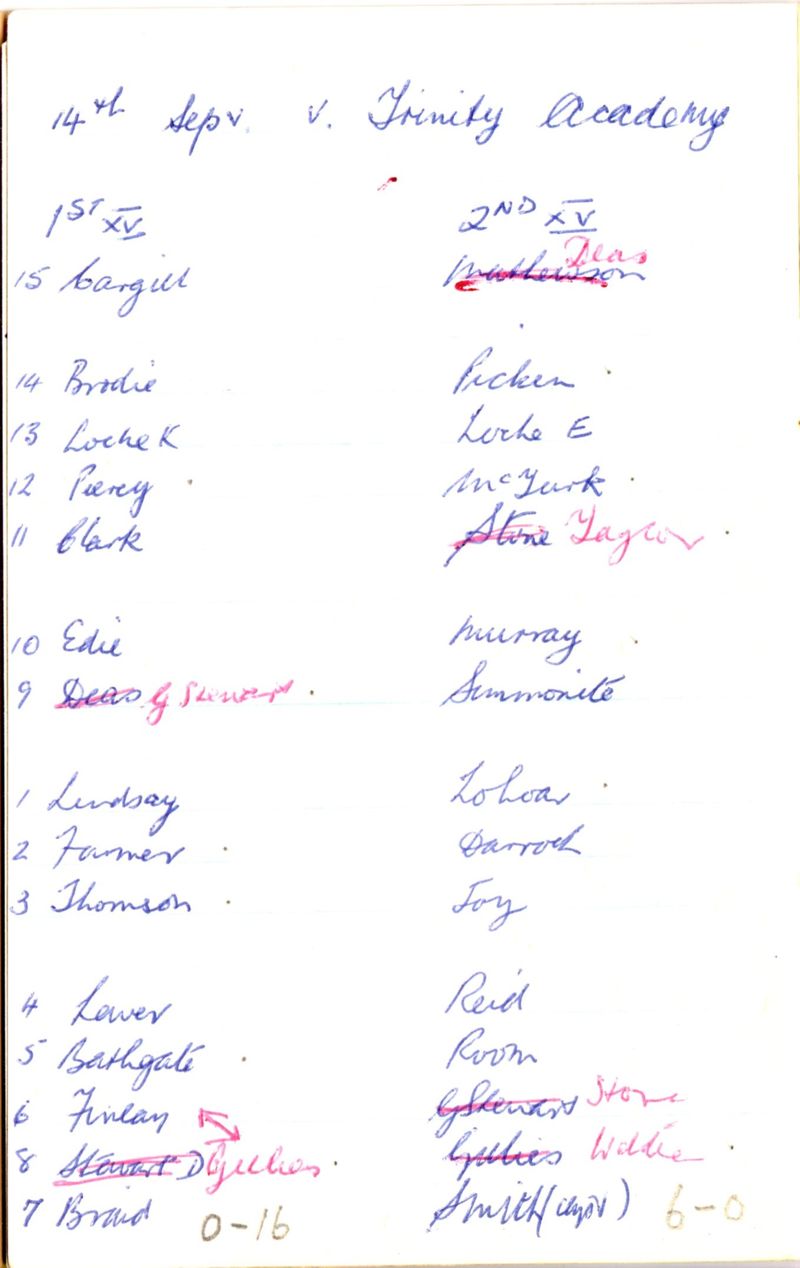 14th Sept. v. Trinity Academy
1ST XV 2ND XV
Deas
15 Cargill Mathewson
14 Brodie Picken
13 Locke K Locke E
12 Piercy McGurk
11 Clark Stone Taylor
10 Edie Murray
9 Deas G Stewart Simmonite
1 Lindsay
2 Farmer Darroch
3 Thomson Foy
4 Lawer Reid
5 Bathgate Room
6 Finlay G Stewart Stone
8 Stewart D Gillies Gillies
7 Braid Smith (capt) 6-0
0-16